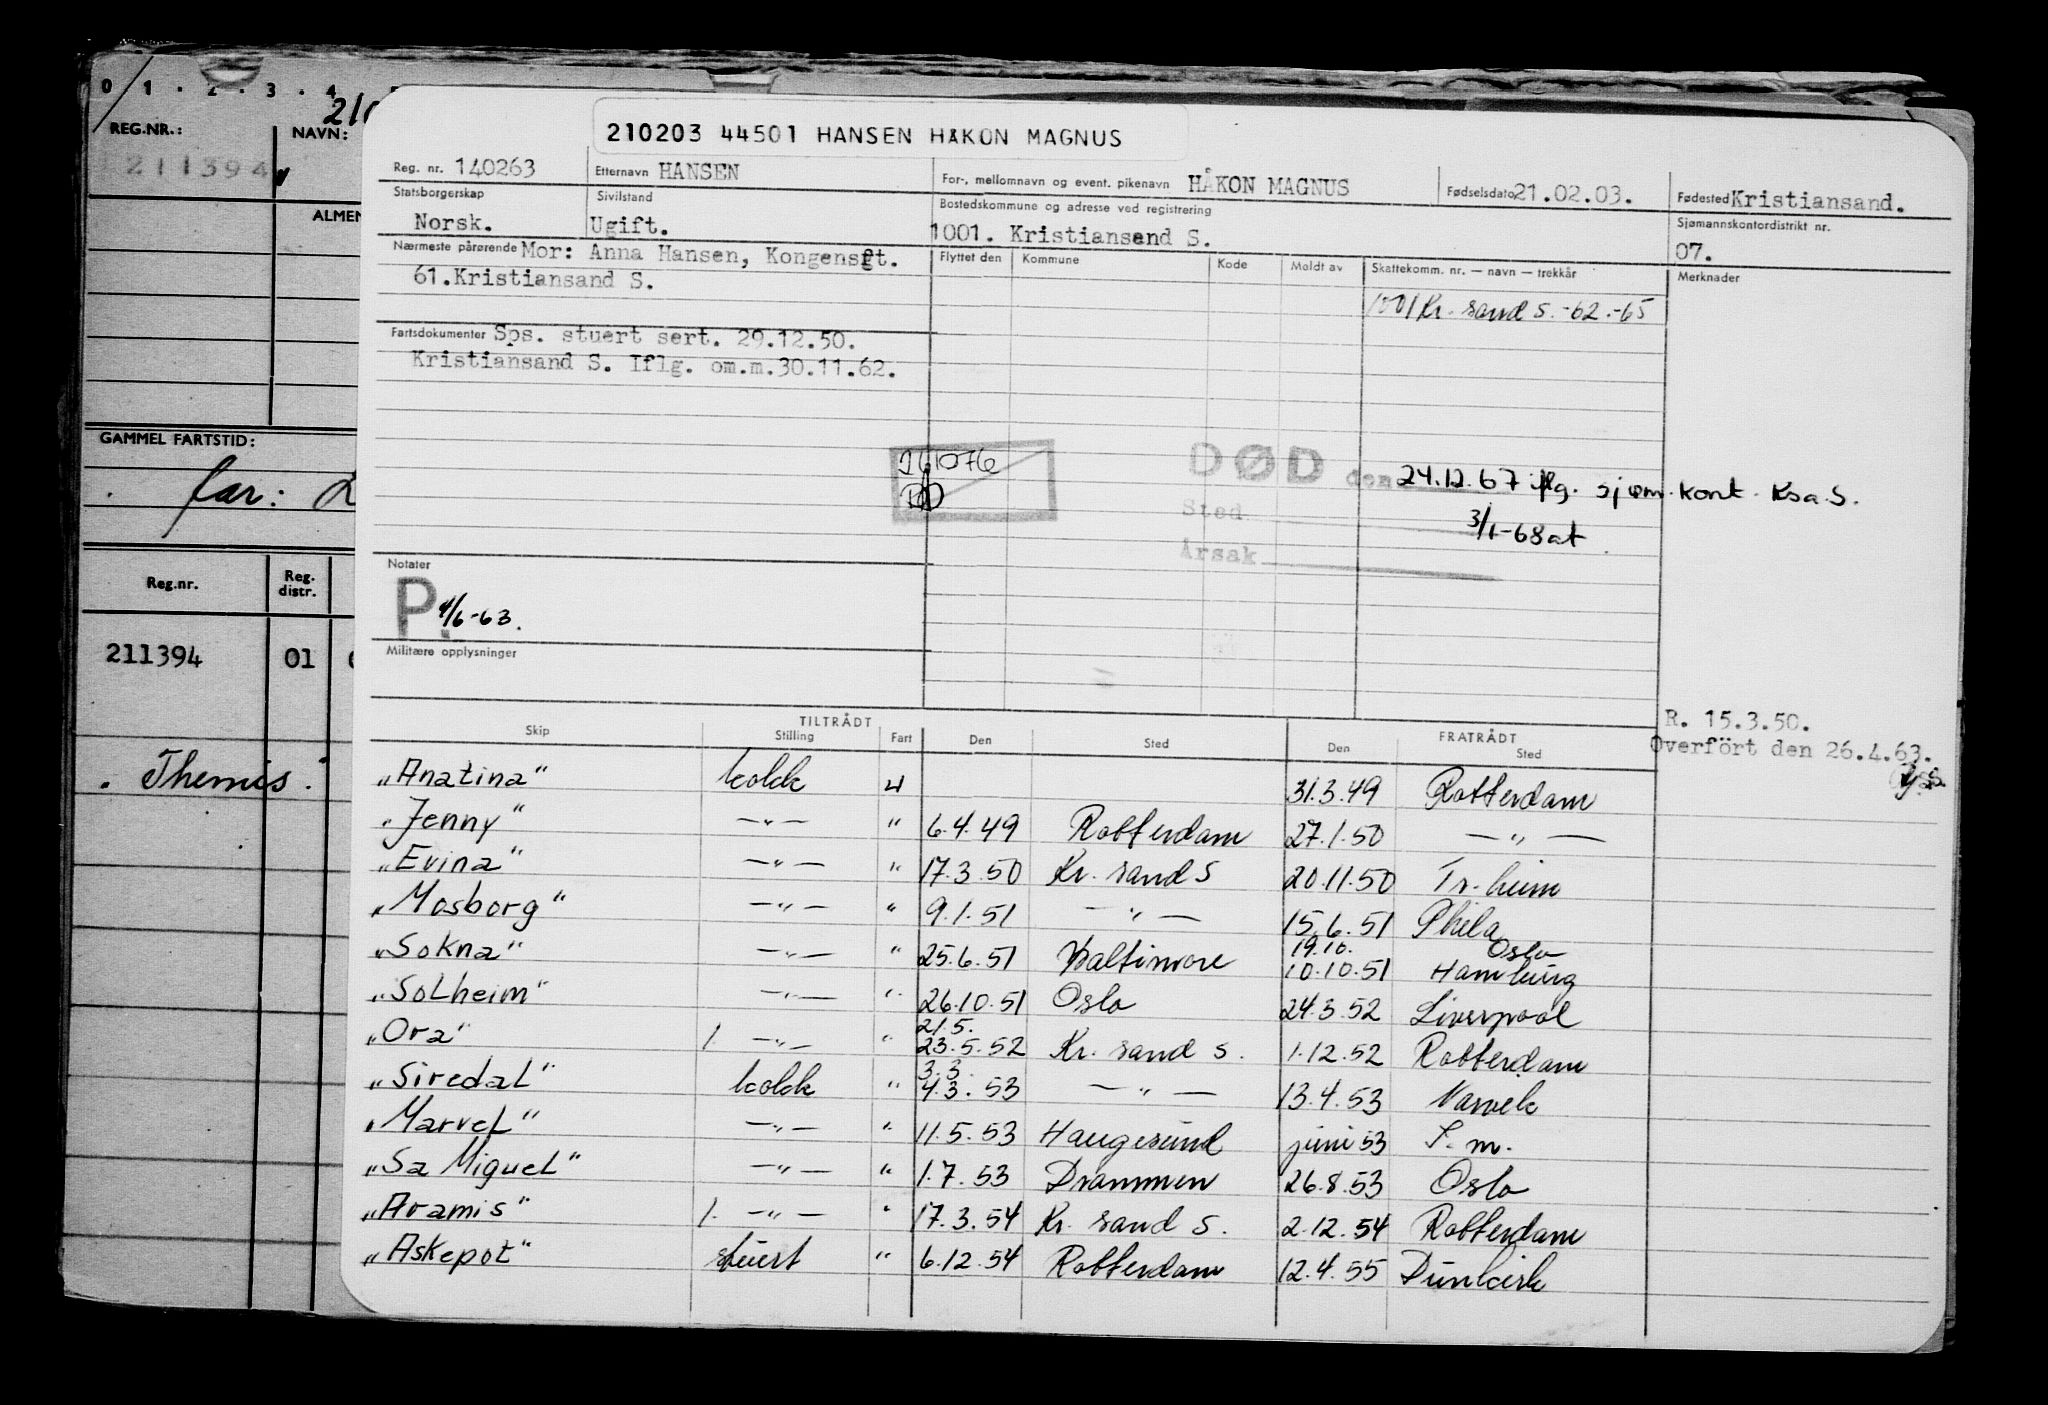 0 1 . 2 . 3 . 4
REG.NR.: NAVN:
211394
ALMEN
GAMMEL FARTSTID:
far:
Reg.nr. Reg. distr.
211394 01
"Themis"
210203 44501 HANSEN HÅKON MAGNUS
Reg. nr. 140263 Etternavn HANSEN For-, mellomnavn og event. pikenavn HÅKON MAGNUS Fødselsdato 21.02.03. Fødested Kristiansand.
Statsborgerskap Norsk. Sivilstand Ugift. Bostedskommune og adresse ved registrering 1001. Kristiansand S. Sjømannskontordistrikt nr. 07.
Nærmeste pårørende Mor: Anna Hansen, Kongensgt.
61.Kristiansand S.
Flyttet den Kommune Kode Meldt av Skattekomm. nr. — navn — trekkår Merknader
1001 Kr. sand S. -62.-65
Fartsdokumenter Sps. stuert sert. 29.12.50.
Kristiansand S. Iflg. om.m.30.11.62.
261076
DØD den 24.12.67 iflg. sjøm.kont. Ksa.S.
Sted 3/1-68 at
Årsak
Notater
P. 4/6-63.
Militære opplysninger
R. 15.3.50.
Overfört den 26.4.63.
TILTRÅDT FRATRÅDT
Skip Stilling Fart Den Sted Den Sted
"Anatina" kokk U 31.3.49 Rotterdam
"Jenny" —"— " 6.4.49 Rotterdam 27.1.50 —"—
"Evina" —"— " 17.3.50 Kr. sand S 20.11.50 Tr.heim
"Mosborg" —"— " 9.1.51 —"— 15.6.51 Phila
"Sokna" —"— " 25.6.51 Baltimore 19.10. Oslo 10.10.51 Hamburg
"Solheim" —"— " 26.10.51 Oslo 24.3.52 Liverpool
"Ora" 1. —"— " 21.5. 23.5.52 Kr. sand S. 1.12.52 Rotterdam
"Siredal" kokk " 3.3. 4.3.53 —"— 13.4.53 Narvik
"Marvel" —"— " 11.5.53 Haugesund juni 53 S.m.
"Sa Miguel" —"— " 1.7.53 Drammen 26.8.53 Oslo
"Aramis" 1. —"— " 17.3.54 Kr. sand S. 2.12.54 Rotterdam
"Askepot" stuert " 6.12.54 Rotterdam 12.4.55 Dunkirk